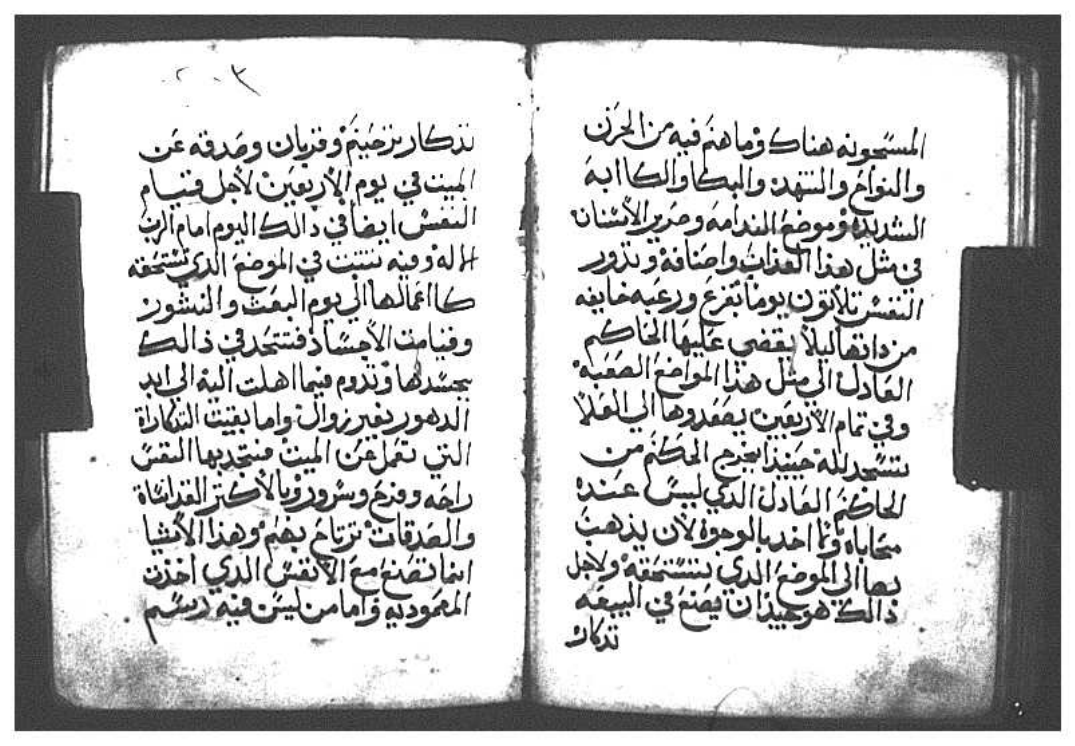 المسجونه هناك وما هم فيه من الحزن
والنواح والتنهد والبكا والكاابه
الشديده وموضع الندامه وصرير الأسنان
في مثل هذا العذاب واصنافه وتدور
النفس تلاتون يوماً بفزع ورعبه خايفه
من داتها ليلا يقضي عليها الحاكم
العادل الي مثل هذا المواضع الصعبه
وفي تمام الأربعين يصعدوها الي العلا
تسجد لله حينيذ يخرج الحكم من
الحاكم العادل الدي ليس عنده
محاباه ولا اخد بالوجوه لأن يذهب
بها الي الموضع الدي تستحقه ولاجل
ذالك هو جيد ان يصنع في البيعه
تدكار
٢٠٣
تدكار ترحيم وقربان وصدقه عن
الميت في يوم الأربعين لأجل قيام
النفس ايضا في دالك اليوم امام الرب
الاله وفيه تتبت في الموضع الدي تستحقه
كااعمالها الي يوم البعث والنشور
وقيامت الأجساد فتتحد في ذالك
بجسدها وتدوم فيما اهلت اليه الي ابد
الدهور بغير زوال واما بقيت التدكاراة
التي تعمل عن الميت فتجد بها النفس
راحه وفرح وسرور وبالأكتر القداساة
والصدقات ترتاح بهم وهذا الأشيا
انما تصنع مع الأنفس الدي اخذت
المعموديه واما من ليس فيه رسم